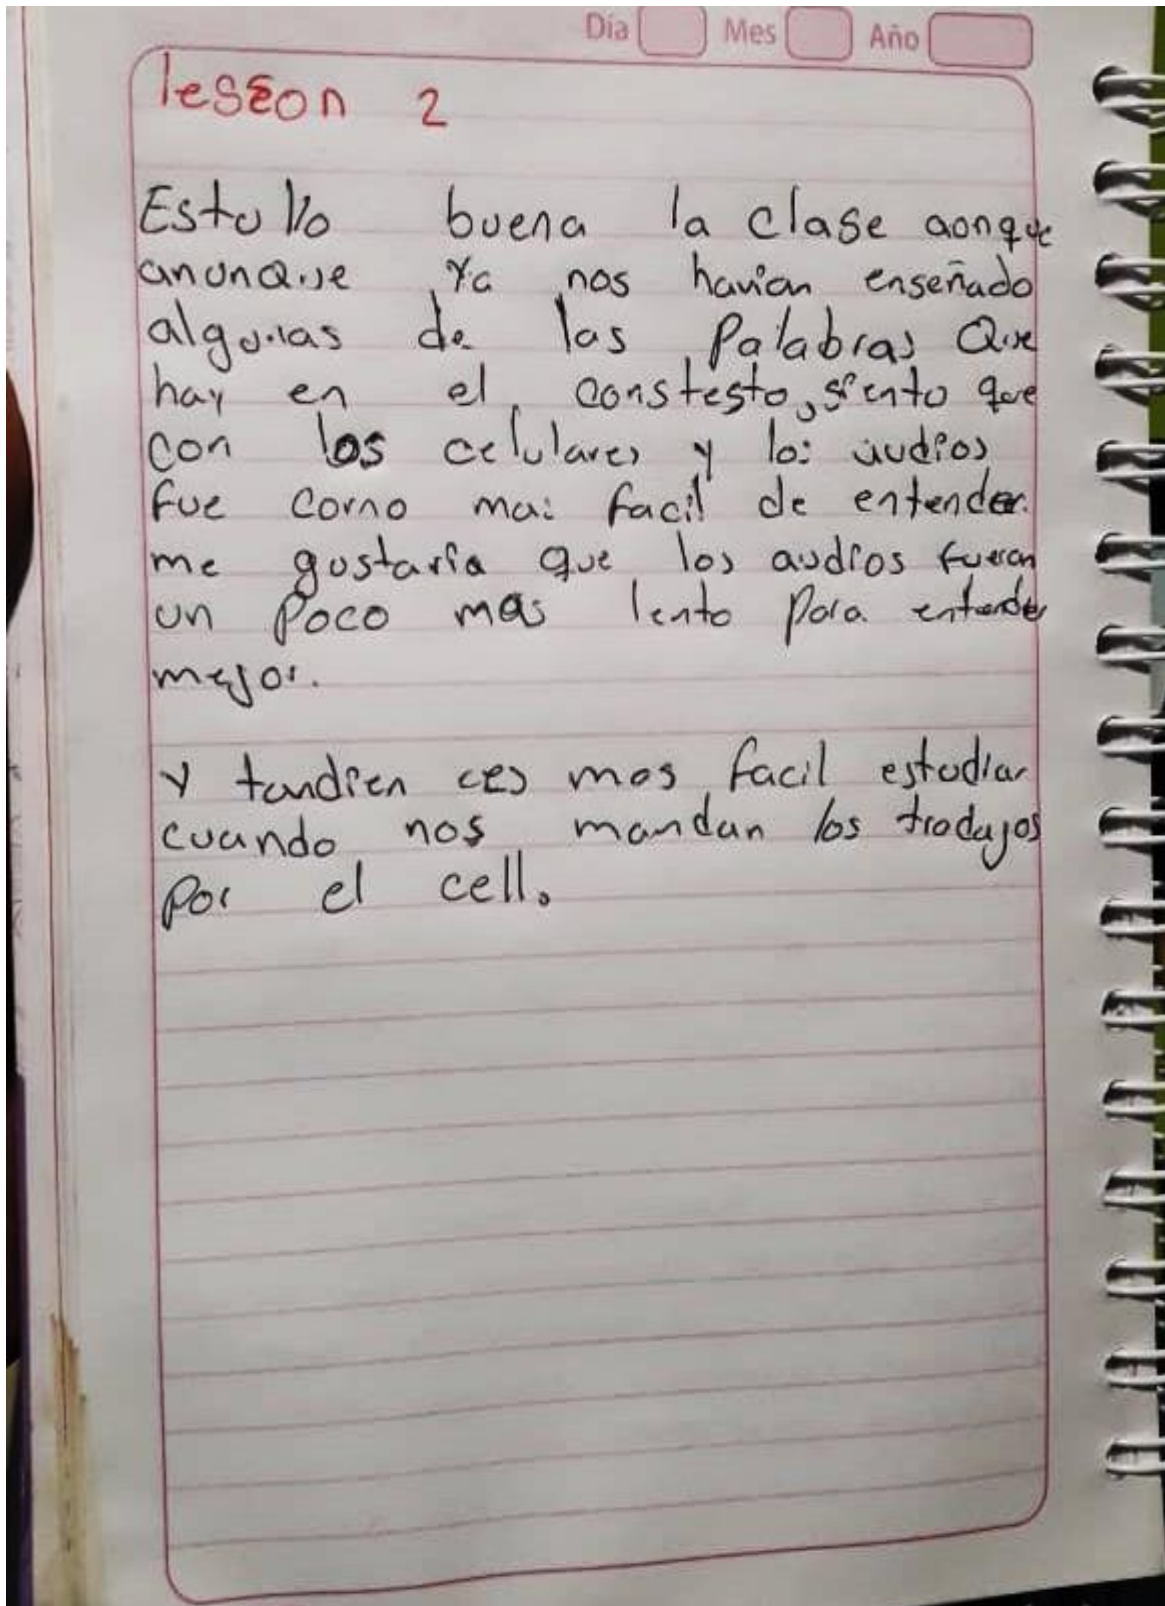 Día Mes Año
lesson 2
Estullo buena la clase aonque
anunque ya nos havian enseñado
algunas de las Palabras Que
hay en el constesto, siento que
con los celulares y los audios
fue como mas facil de entender.
me gustaría que los audios fueran
un Poco mas lento para entender
mejor.
Y tandien ces mas facil estudiar
cuando nos mandan los trodajos
por el cell.